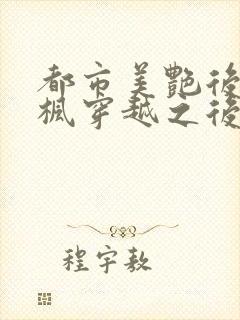 都市美艷後
楓穿越之後
程宇敖